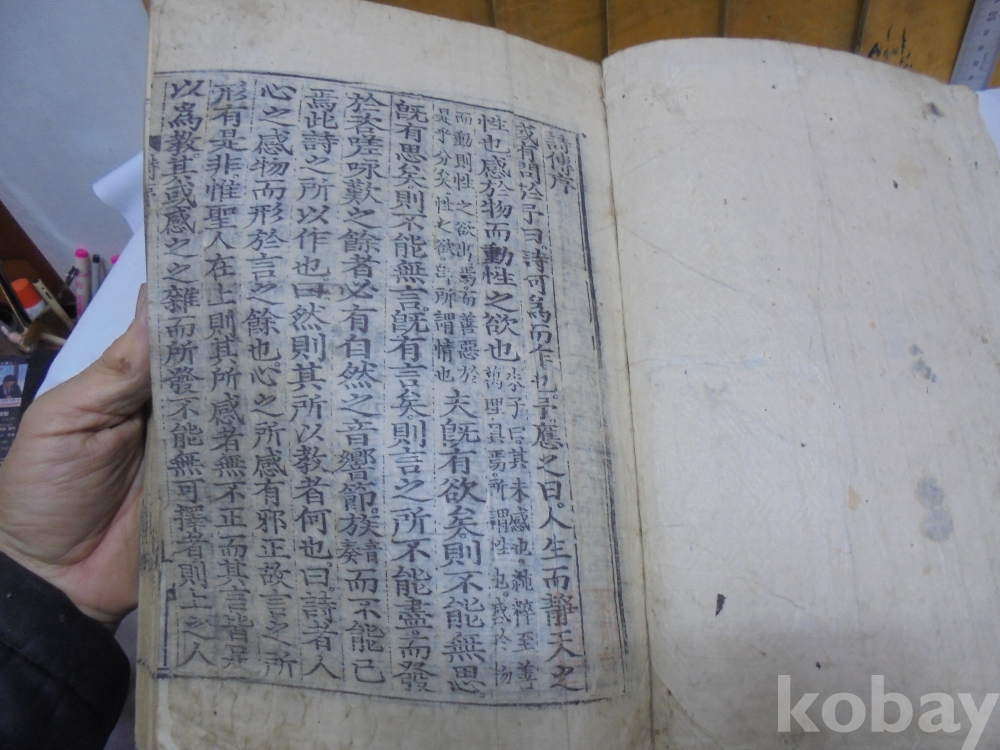 詩傳序
或有問於予曰。詩何爲而作也。予應之曰。人生而靜天之
性也感於物而動性之欲也
朱子曰其未感也。純粹至善
萬理具焉。所謂性也。感於物
而動則性之欲出焉。而善惡於
是乎分矣性之欲。卽所謂情也
夫旣有欲矣。則不能無思。
旣有思矣。則不能無言。旣有言矣。則言之所不能盡。而發
於咨嗟咏歎之餘者必有自然之音響節。族音奏而不能已
焉此詩之所以作也曰然則其所以敎者何也。曰。詩者人
心之感物而形於言之餘也。心之所感有邪正故言之所
形有是非惟聖人在上則其所感者無不正而其言皆足
以爲教。其或感之之雜而所發不能無可擇者則上之人
kobay